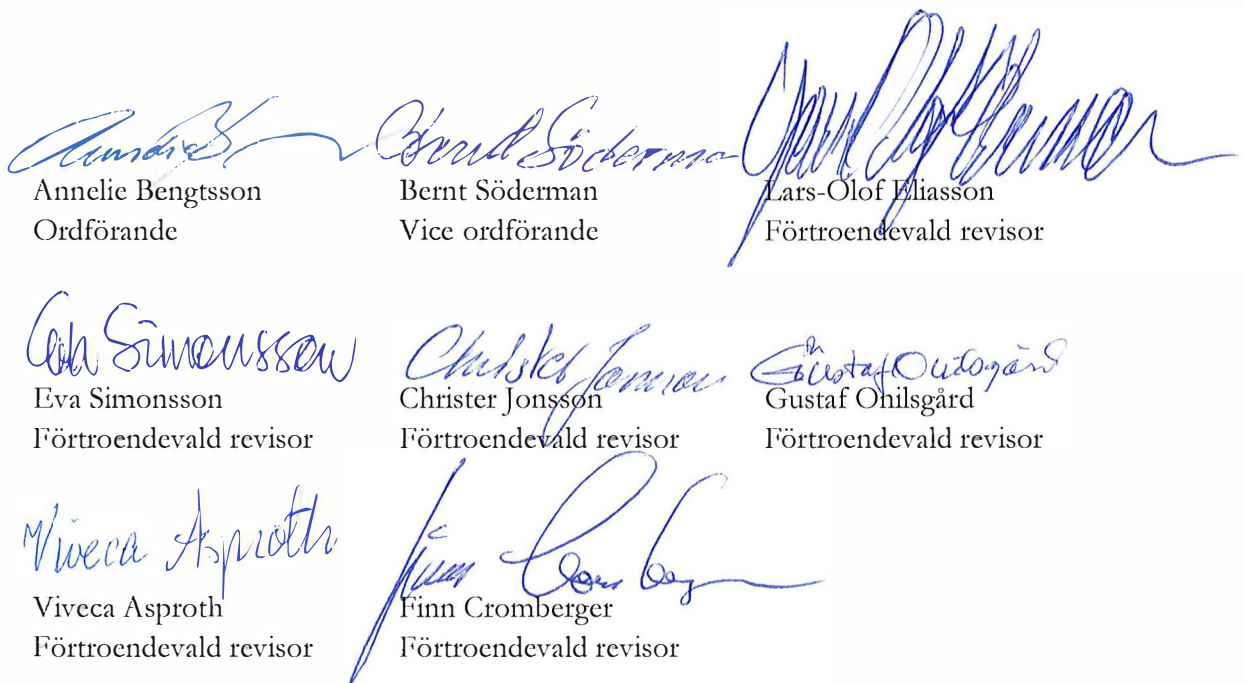 Annelie Bengtsson
Ordförande
Bernt Söderman
Bernt Söderman
Vice ordförande
Lars-Olof Eliasson
Förtroendevald revisor
Eva Simonsson
Eva Simonsson
Förtroendevald revisor
Christer Jonsson
Christer Jonsson
Förtroendevald revisor
Gustaf Onilsgård
Förtroendevald revisor
Viveca Asproth
Viveca Asproth
Förtroendevald revisor
Finn Cromberger
Förtroendevald revisor